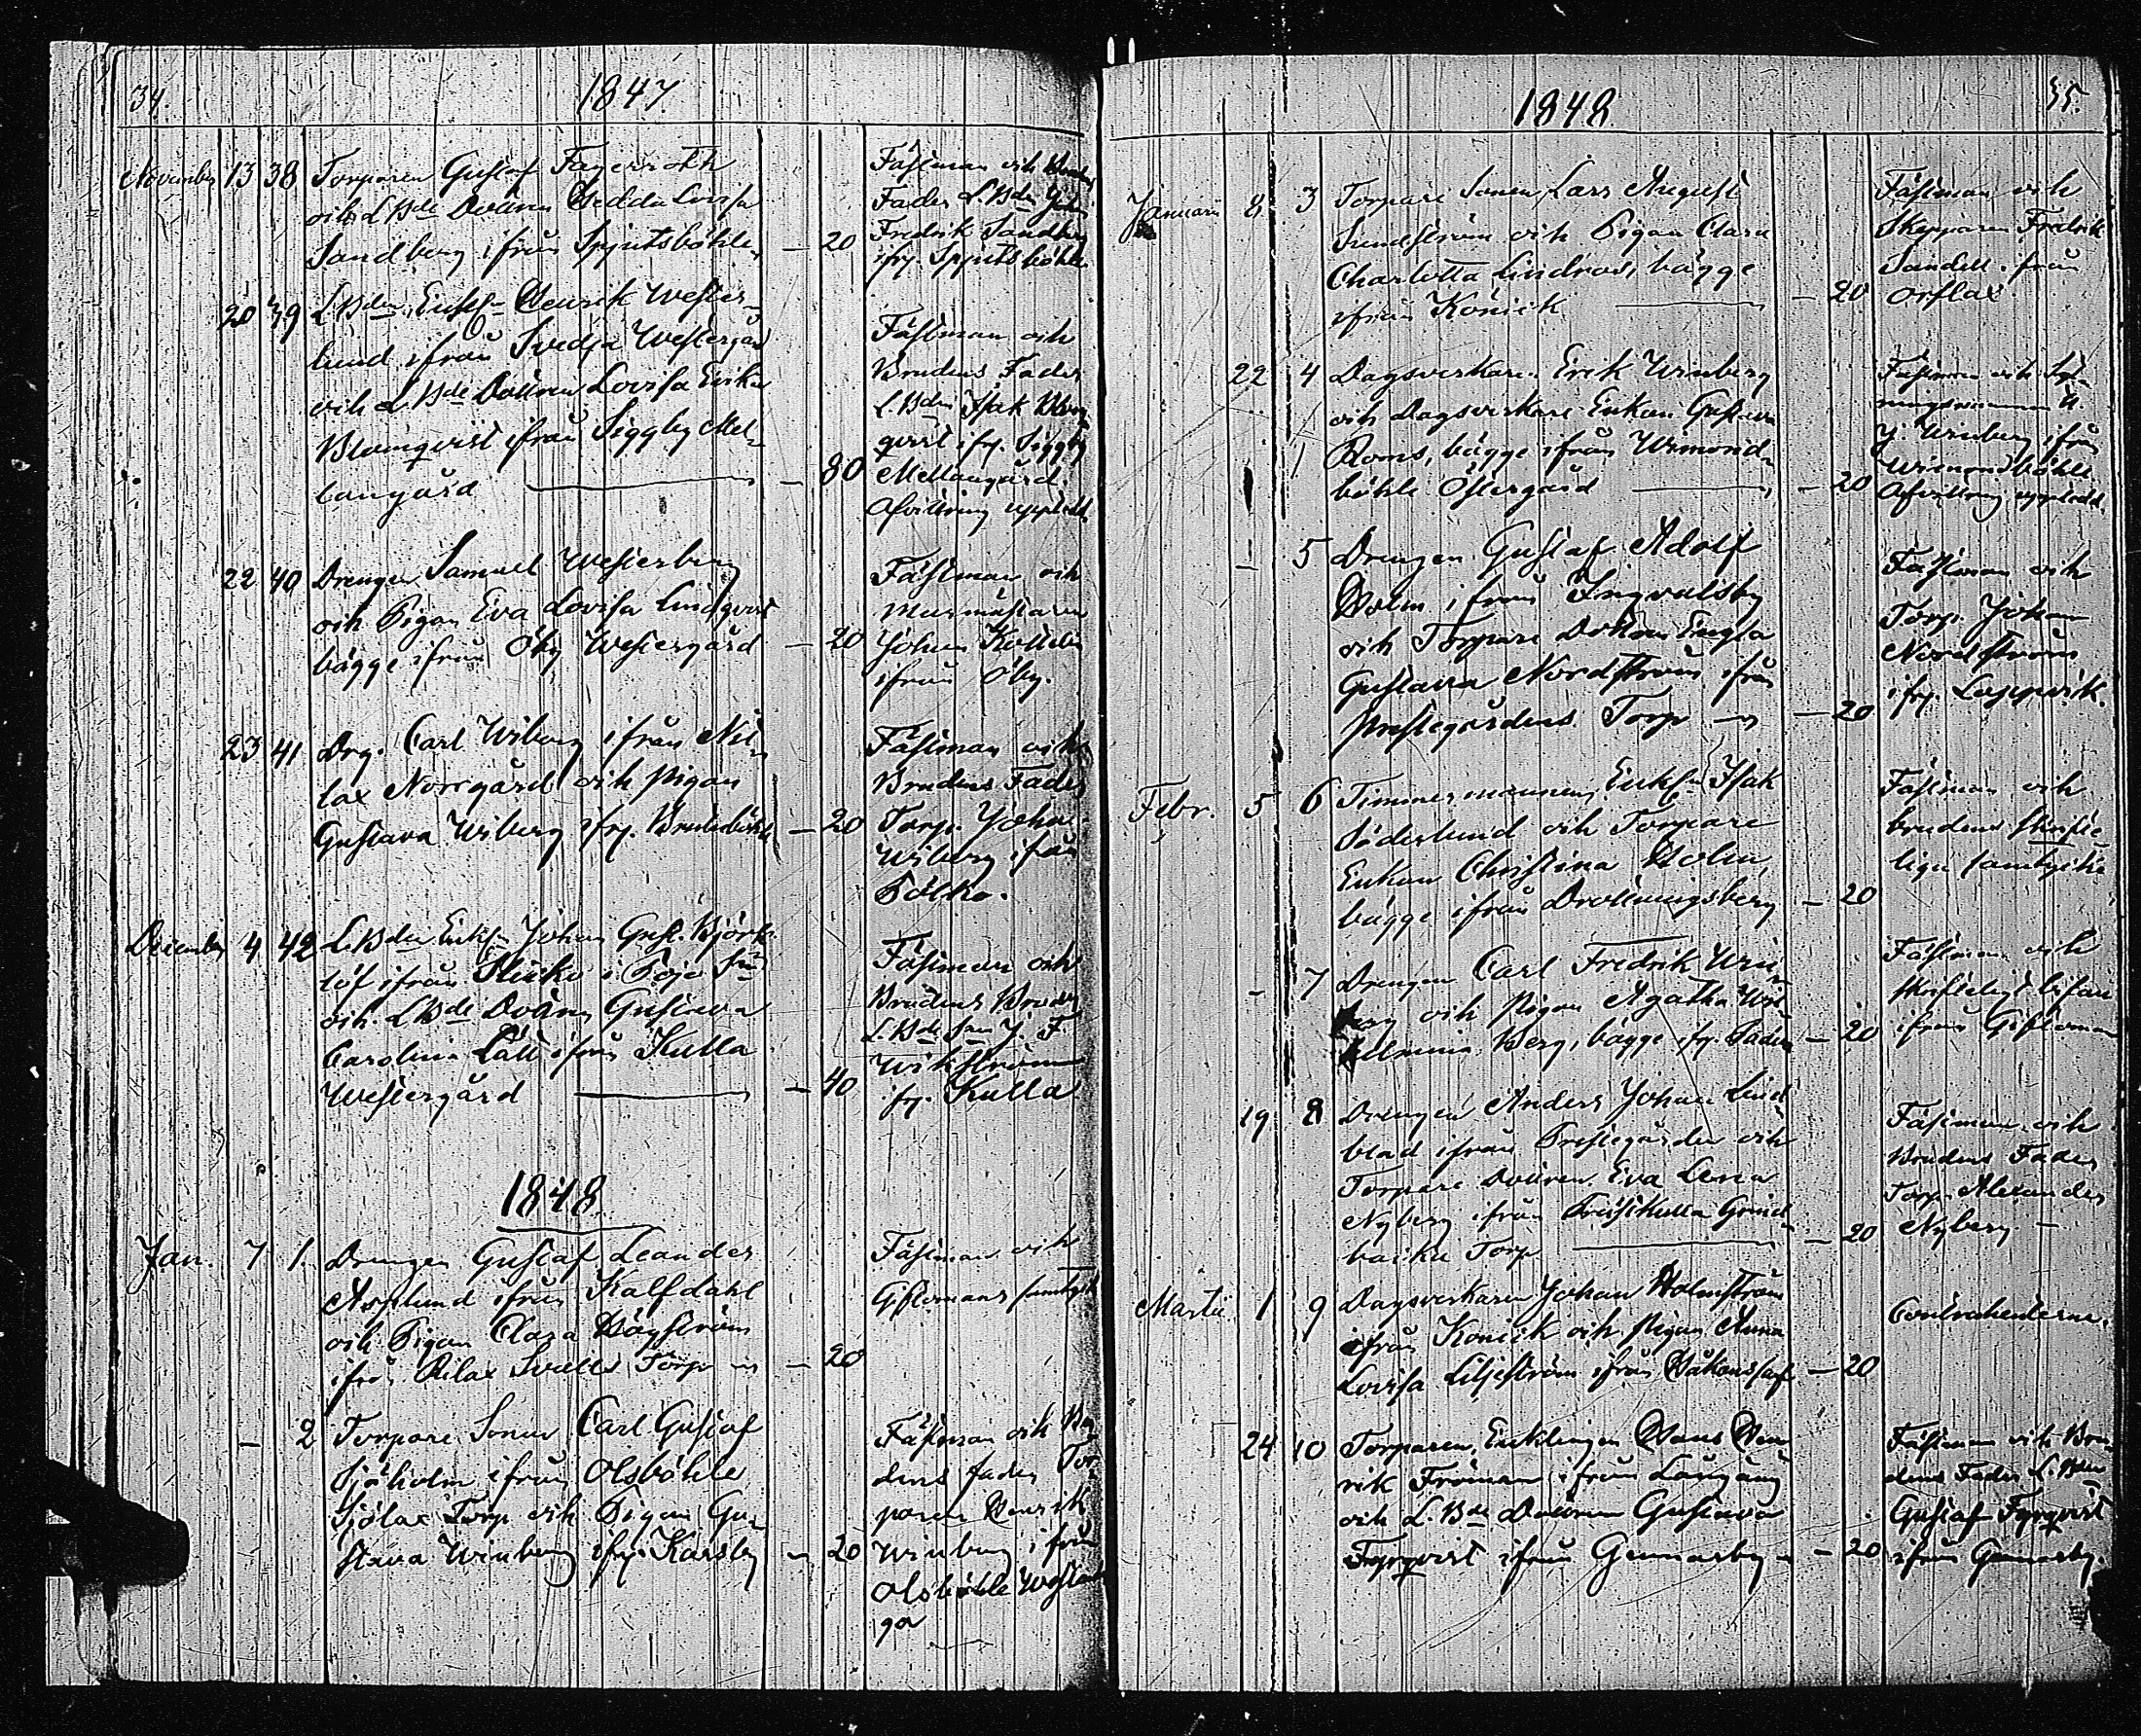 34.
1847
November 13 38 Torparen Gustaf Fagerroth
och L. Bde Dottren Hedda Lovisa
Sandberg ifrån Spjutsböhle — 20
Fästman och Brudens
Fader L. Bden Johan
Fredrik Sandberg
ifrg. Spjutsböhle.
20 39 L Bden, Enkl. Henrik Wester-
lund ifrån Svedja Westergård
och L Bde Dottren Lovisa Erika
Blomqvist ifrån Siggby Mel-
langård — 80
Fästman och
Brudens Fader
L. Bden Isak Blom-
qvist ifrg. Siggby
Mellangård.
Afvittring uppledt.
22 40 Drengen Samuel Westerberg
och Pigan Eva Lovisa Lindqvist
bägge ifrån Öby Westergård — 20
Fästman och
Murmästaren
Johan
ifrån Öby.
23 41 Drg. Carl Wiberg ifrån
lax Norrgård och pigan
Gustava Wiberg ifrg. — 20
Fästman och
Brudens Fader
Torp. Johan
Wiberg ifrån
December 4 42 L. Bden Enkl. Johan Gust. Björk-
löf ifrån i Pojo Sn
och L Bde Dottren Gustava
Carolina Lätt ifrån Kulla
Westergård — 40
Fästman och
Brudens Broder
L. Bde Son J. F.
Wikström
ifrg. Kulla
1848
Jan. 7 1. Drengen Gustaf Leander
Asplund ifrån Kalfdahl
och Pigan Clara Hägström
ifrån Rilax Torp — 20
Fästman och
Giftomans samtycke
— 2 Torpare Sonen Carl Gustaf
Sjöholm ifrån Olsböhle
Sjölax Torp och Pigan Gu-
stava Winberg ifrg. Karsby — 20
Fästman och Bru-
dens fader Tor-
paren Henrik
Winberg ifrån
Olsböhle Wester-
ga
35.
1848
Januarii 8 3 Torpare Sonen Lars August
Sundström och Pigan Clara
Charlotta Lindroos, bägge
ifrån Könick — 20
Fästman och
Skepparen Fredrik
Sandell ifrån
Orslax.
22 4 Dagsverkare Erik Winberg
och Dagsverkare Enkan Gustava
Roms, bägge ifrån Wemonds-
böhle Östergård — 20
Fästman och
J. Winberg ifrån
Wiemonsböhle
Afvittring uppledt.
— 5 Drengen Gustaf Adolf
Holm ifrån Ingvalsby
och Torpare Dottren Engla
Gustava Nordström ifrån
Prestegårdens Torp — 20
Fästman och
Torp. Johan
Nordström
ifrg. Lappvik.
Febr. 5 6 Timmermannen, Enkl. Isak
Söderlund och Torpare
Enkan Christina Holm,
bägge ifrån Drottningsberg — 20
Fästman och
brudens skrifte-
liga samtycke
— 7 Drengen Carl Fredrik Win-
berg och Pigan Agatha Wil-
helmina Berg, bägge ifrg. — 20
Fästman och
skrifteligt bifall
ifrån Giftoman
19 8 Drengen Anders Johan Lind-
blad ifrån Prestegården och
Torpare Dottren Eva Lena
Nyberg ifrån Grind-
backa Torp — 20
Fästman och
Brudens Fader
Torp. Alexander
Nyberg —
Martii 1 9 Dagsverkaren Johan Holmström
ifrån Konick och Pigan Anna
Lovisa Liljeström ifrån — 20
Contrahenterne.
24 10 Torparen, Enklingen Hans Hen-
rik Fröman ifrån Långäng
och L. Bde Dottren Gustava
Fyrqvist ifrån Gennarby — 20
Fästman och Bru-
dens Fader L. Bden
Gustaf Fyrqvist
ifrån Gennarby.